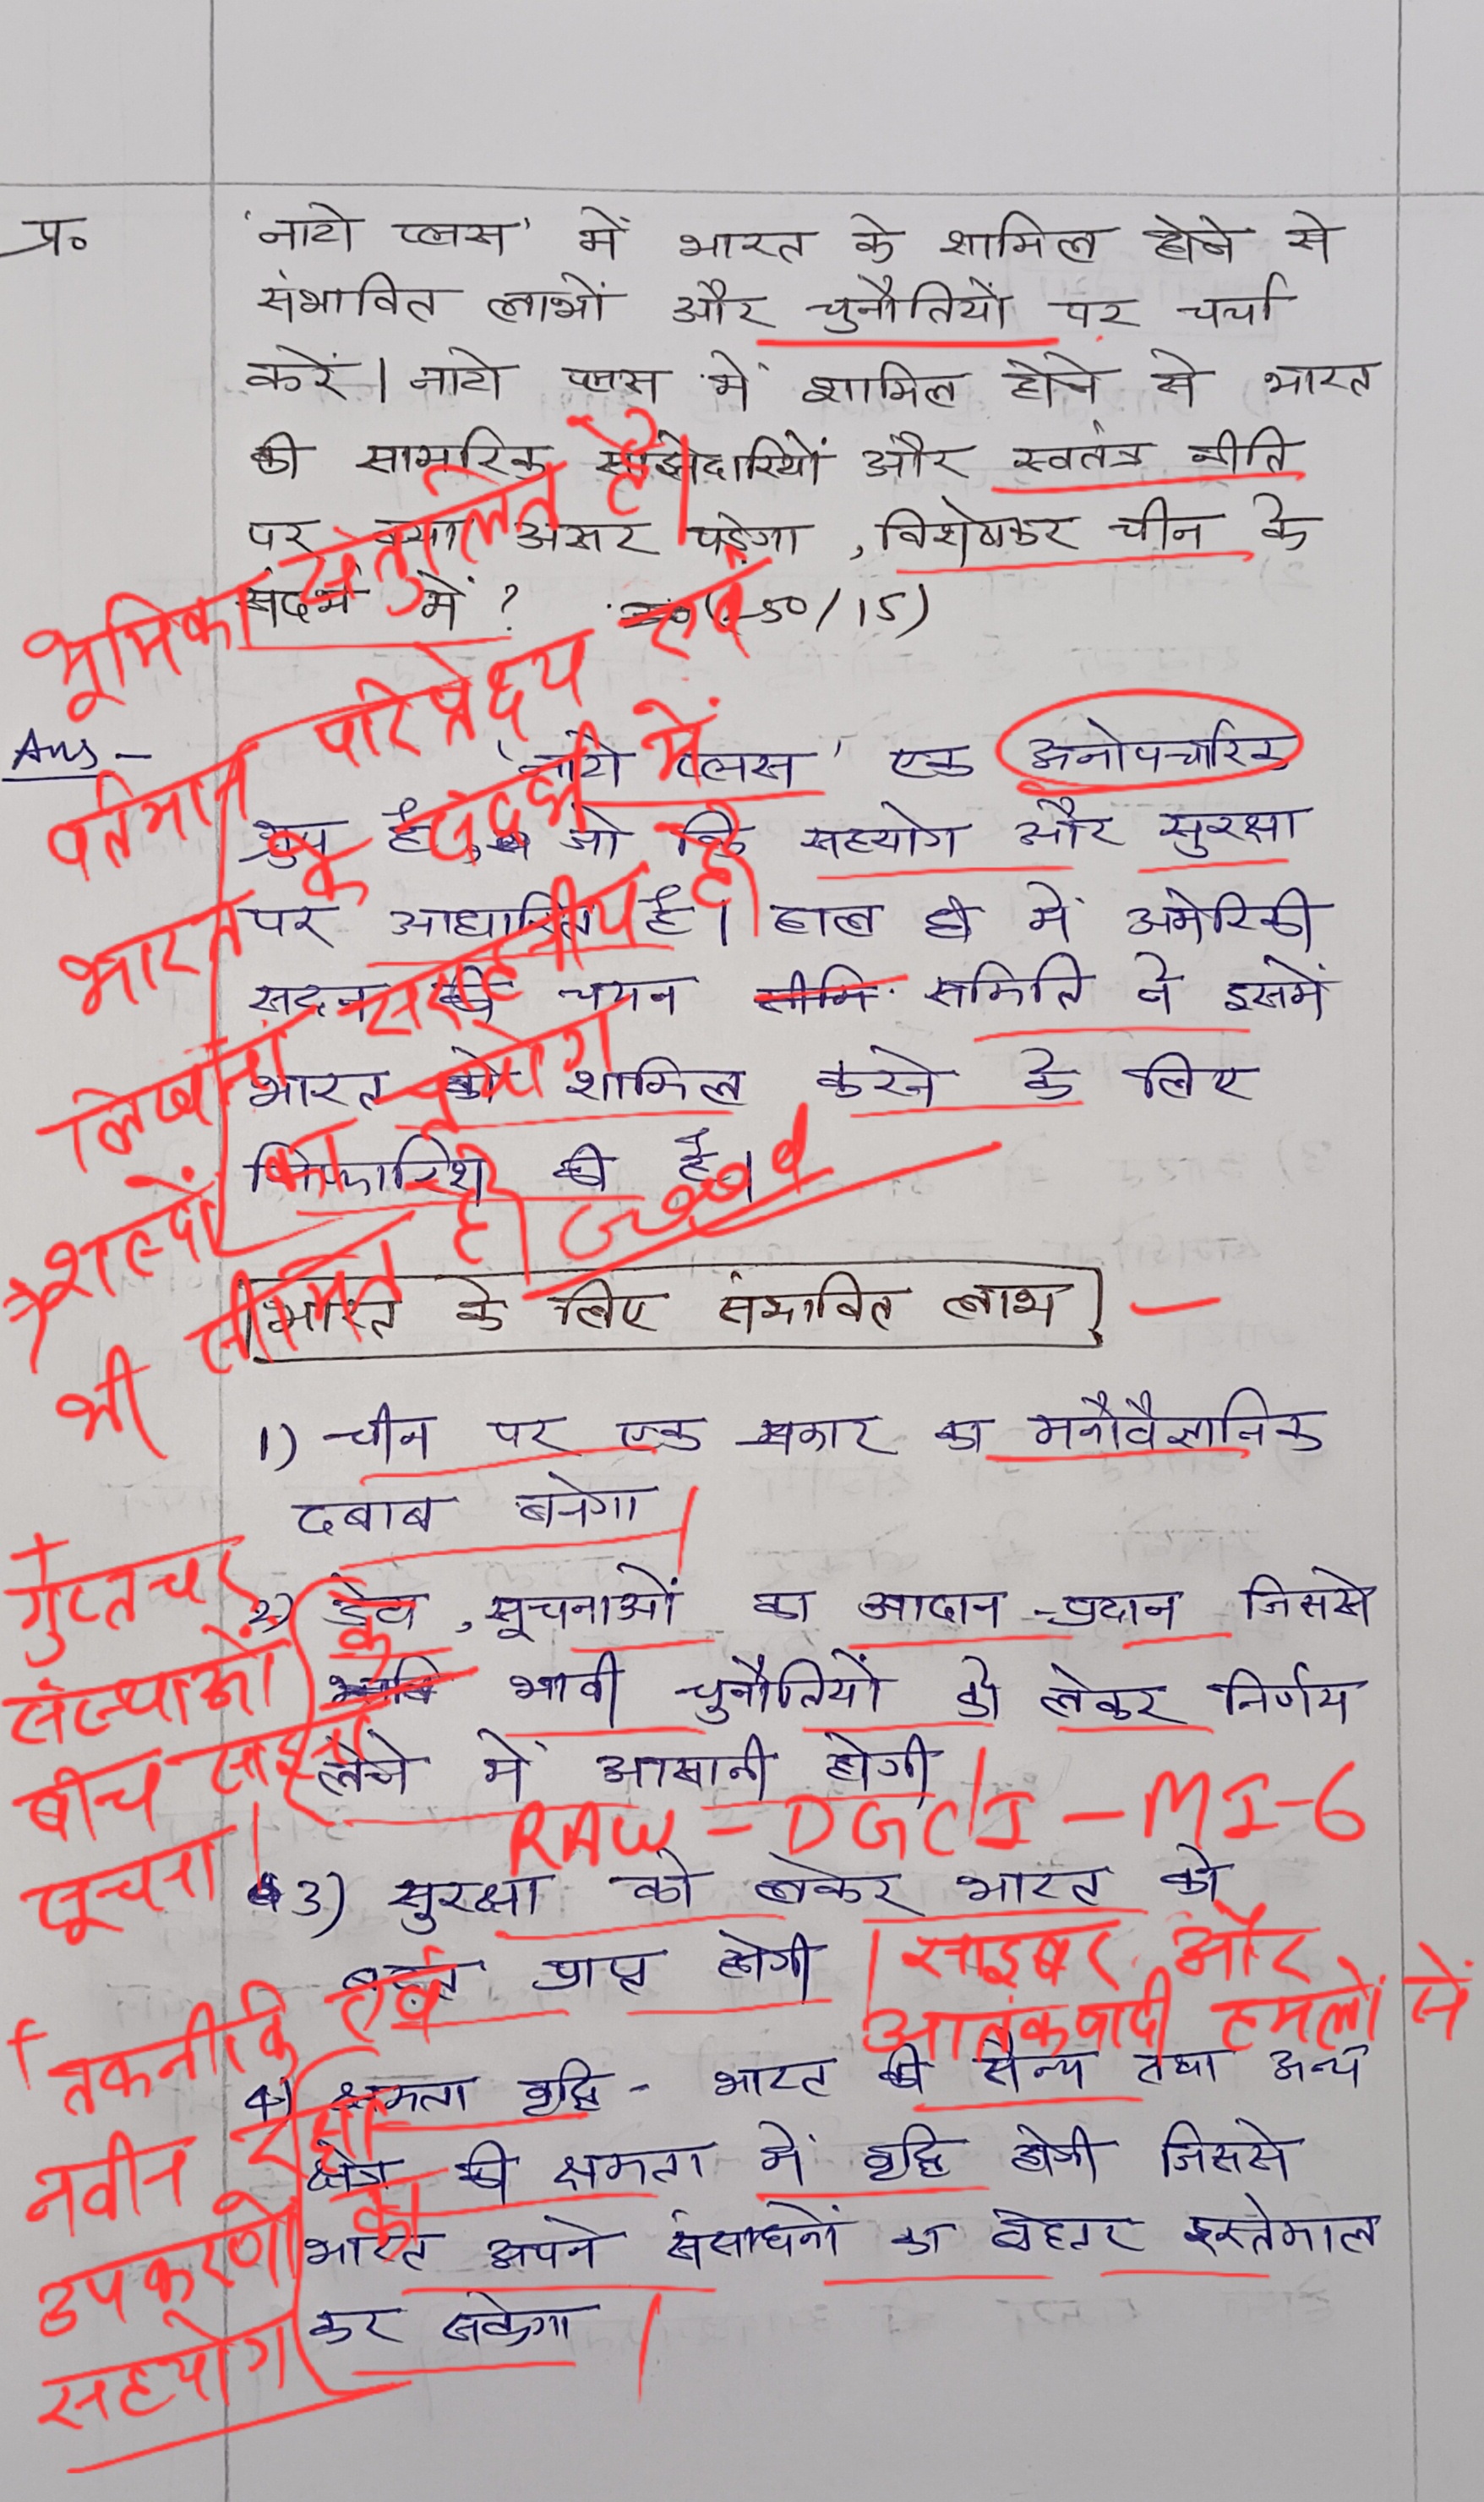 प्र० 'नाटो प्लस' में भारत के शामिल होने से
संभावित लाभों और चुनौतियों पर चर्चा
करें। नाटो प्लस में शामिल होने से भारत
की सामरिक साझेदारियों और स्वतंत्र नीति
पर क्या असर पड़ेगा, विशेषकर चीन के
संदर्भ में? (250/15)
भूमिका संतुलित है।
वर्तमान परिप्रेक्ष्य एवं
भारत के संदर्भ में
लिखना सराहनीय है।
शब्दों का चुनयोग
भी सीमित है। Good
Ans - 'नाटो प्लस' एक अनोपचारिक
ग्रुप है, जो कि सहयोग और सुरक्षा
पर आधारित है। हाल ही में अमेरिकी
सदन की चयन समिति ने इसमें
भारत को शामिल करने के लिए
सिफारिश की है।
भारत के लिए संभावित लाभ -
1) चीन पर एक प्रकार का मनौवैज्ञानिक
दबाब बनेगा
2) डेटा, सूचनाओं का आदान-प्रदान जिससे
भावी चुनौतियों को लेकर निर्णय
लेने में आसानी होगी
गुप्तचर
संस्थाओं के
बीच साझा
सूचना।
RAW - DGCI - MI-6
3) सुरक्षा को लेकर भारत को
बढ़त प्राप्त होगी
साइबर और
आतंकवादी हमलों से
4) क्षमता वृद्धि - भारत की सैन्य तथा अन्य
क्षेत्र की क्षमता में वृद्धि होगी जिससे
भारत अपने संसाधनों का बेहतर इस्तेमाल
कर सकेगा
तकनीकि एवं
नवीन रक्षा
उपकरणों का
सहयोग